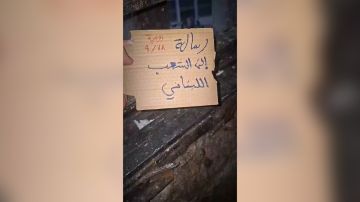 رسالة
إلى الشعب
اللبناني
٩/٢٨